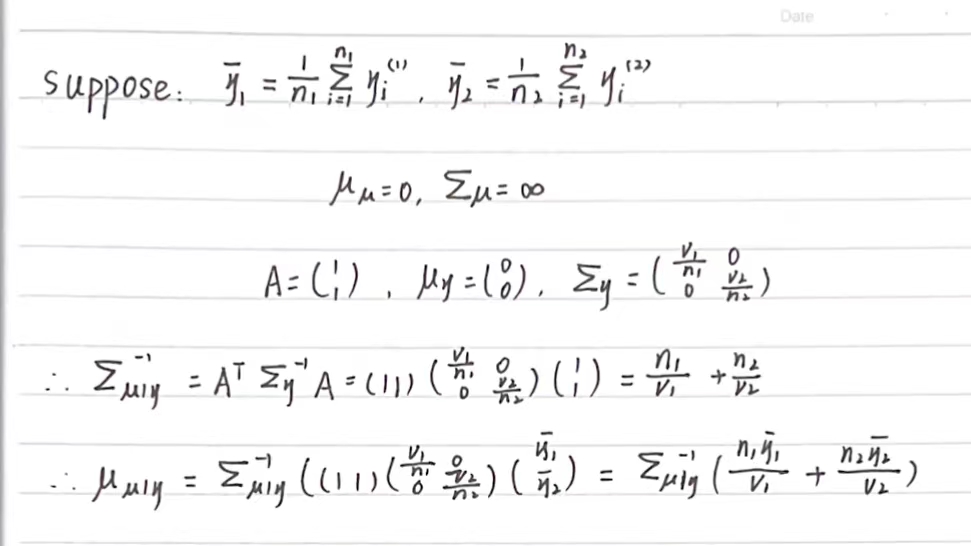 Date
suppose: ȳ₁ = 1/n₁ Σ_{i=1}^{n₁} y_i^{(1)}, ȳ₂ = 1/n₂ Σ_{i=1}^{n₂} y_i^{(2)}
μ_μ = 0, Σ_μ = ∞
A = (1; 1), μ_y = (0; 0), Σ_y = (v₁/n₁ 0; 0 v₂/n₂)
∴ Σ_{μ|y}^{-1} = A^T Σ_y^{-1} A = (1 1) (v₁/n₁ 0; 0 v₂/n₂) (1; 1) = n₁/v₁ + n₂/v₂
∴ μ_{μ|y} = Σ_{μ|y}^{-1} ((1 1) (v₁/n₁ 0; 0 v₂/n₂) (ȳ₁; ȳ₂) = Σ_{μ|y}^{-1} (n₁ȳ₁/v₁ + n₂ȳ₂/v₂)